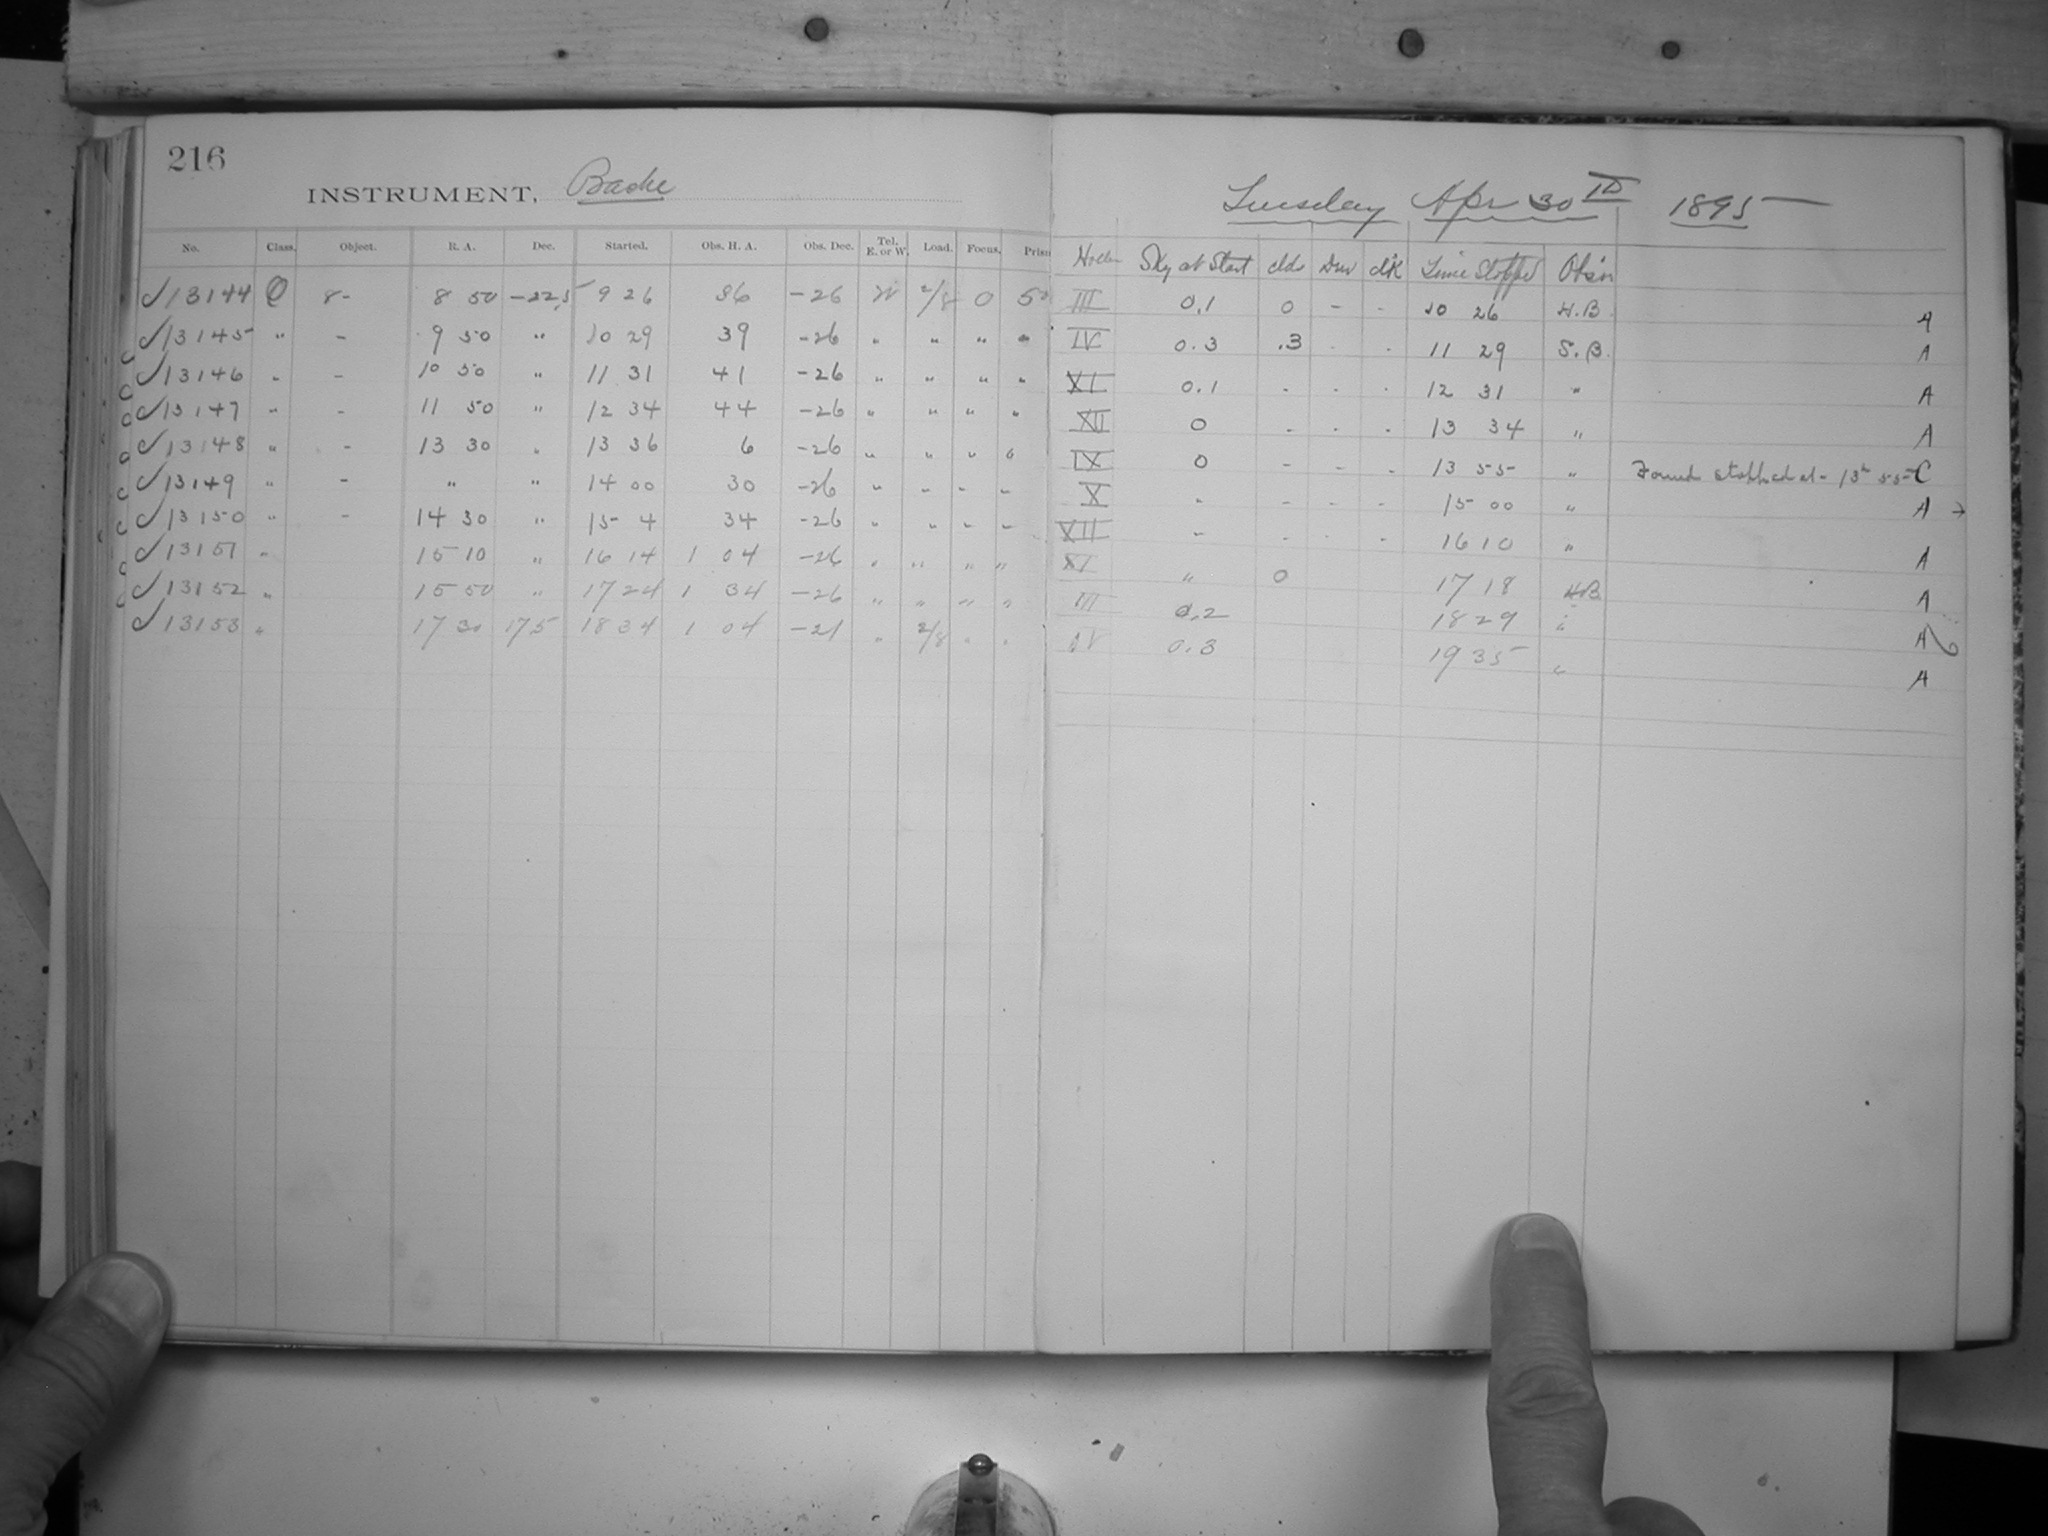 216
INSTRUMENT, Bache
Tuesday Apr 30 1895
No. Class. Object. R. A. Dec. Started. Obs. H. A. Obs. Dec. Tel. E. or W. Load. Focus. Prism Holder Sky at Start clds Dew clk Time Stopped Obs'r
13144 8- 8 50 -22.5 9 26 36 -26 W 2/8 0 III 0.1 0 - - 10 26 H.B. A
13145 " - 9 50 " 10 29 39 -26 " " " " IV 0.3 .3 - - 11 29 S.B. A
13146 " - 10 50 " 11 31 41 -26 " " " " XI 0.1 - - - 12 31 " A
13147 " - 11 50 " 12 34 44 -26 " " " " XII 0 - - - 13 34 " A
13148 " - 13 30 " 13 36 6 -26 " " " " IX 0 - - - 13 55 " Found stopped at 13h 55 C
13149 " - " " 14 00 30 -26 " " " " X " - - - 15 00 " A
13150 " - 14 30 " 15 4 34 -26 " " " " XII " - - - 16 10 " A
13151 " 15 10 " 16 14 1 04 -26 " " " " XI " 0 17 18 H.B. A
13152 " 15 50 " 17 24 1 34 -26 " " " " III 0.2 18 29 " A
13153 " 17 30 175 18 34 1 04 -21 " 2/8 " " IV 0.3 19 35 " A